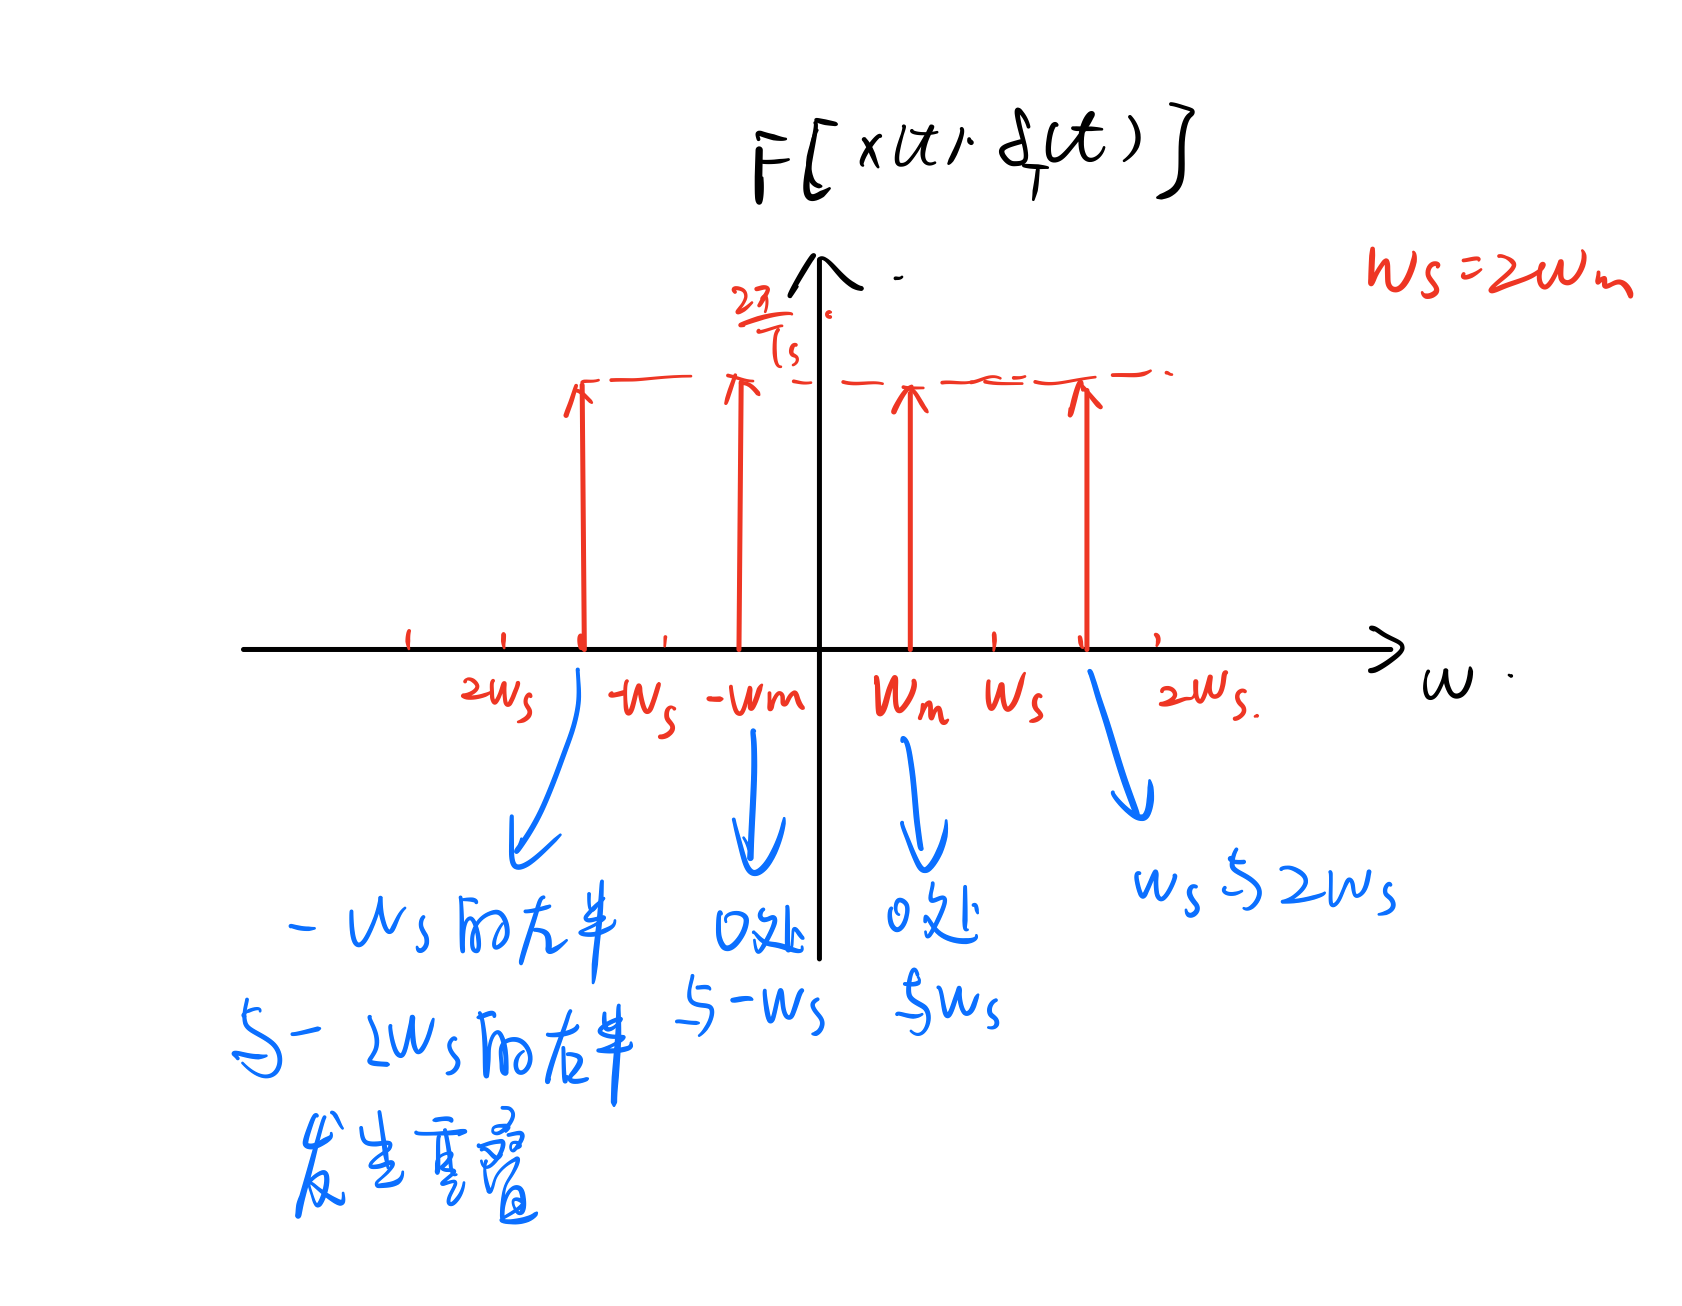 F[x(t)·δ_T(t)]
Ws=2Wm
2π/Ts
2Ws -Ws -Wm Wm Ws 2Ws.
w
-Ws的左半
与-2Ws的右半
发生重叠
0处
与-Ws
0处
与Ws
Ws与2Ws